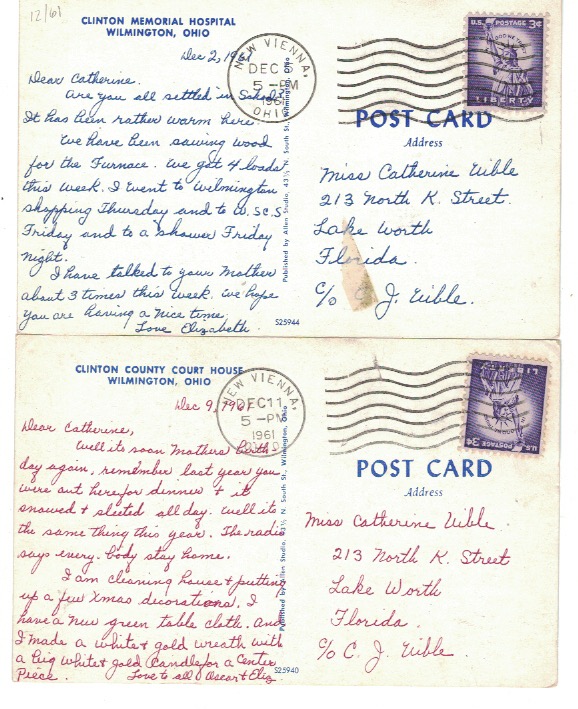 12/61
CLINTON MEMORIAL HOSPITAL
WILMINGTON, OHIO
Dec 2, 1961
Dear Catherine.
Are you all settled in School
It has been rather warm here
We have been sawing wood
for the Furnace. We get 4 loads
this week. I went to Wilmington
shopping Thursday and to W.S.C.S
Friday and to a shower Friday
night.
I have talked to your Mother
about 3 times this week. We hope
you are having a nice time.
Love Elizabeth.
Published by Allen Studio, 43½ N. South St., Wilmington, Ohio
S25944
NEW VIENNA,
DEC
5 -PM
1961
OHIO
U.S. POSTAGE 3¢
IN GOD WE TRUST
LIBERTY
POST CARD
Address
Miss Catherine Uible
213 North K. Street.
Lake Worth
Florida.
c/o C J. Uible.
CLINTON COUNTY COURT HOUSE
WILMINGTON, OHIO
Dec 9, 1961
Dear Catherine,
Well its soon Mothers birth-
day again, remember last year you
were out here for dinner + it
snowed + sleeted all day. Well its
the same thing this year. The radio
says every-body stay home.
I am cleaning house + putting
up a few Xmas decorations. I
have a new green table cloth. And
I made a white + gold wreath with
a big white + gold Candle for a Center
Piece. Love to all Oscar + Eliz
Published by Allen Studio, 43½ N. South St., Wilmington, Ohio
S25940
NEW VIENNA,
DEC 11
5 -PM
1961
OHIO
U.S. POSTAGE 3¢
LIBERTY
POST CARD
Address
Miss Catherine Uible.
213 North K. Street
Lake Worth
Florida.
c/o C. J. Uible.